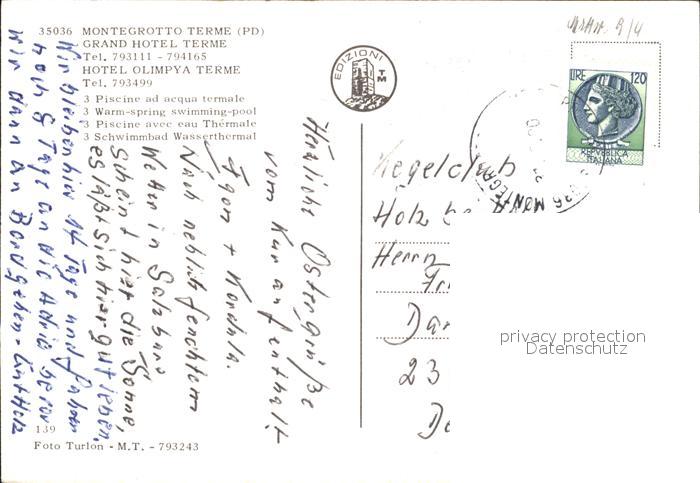 35036 MONTEGROTTO TERME (PD)
GRAND HOTEL TERME
Tel. 793111 - 794165
HOTEL OLIMPYA TERME
Tel. 793499
3 Piscine ad acqua termale
3 Warm-spring swimming-pool
3 Piscine avec eau Thérmale
3 Schwimmbad Wasserthermal
EDIZIONI
TM
LIRE 120
REPVBBLICA
ITALIANA
35036 MONTEGR
Herzliche Ostergrüße
vom Kuraufenthalt
Egon + Kordula.
Nach neblich feuchtem
Wetter in Salzburg
scheint hier die Sonne,
es läßt sich hier gut leben.
Wir bleiben hier 14 Tage und fahren
noch 8 Tage an die Adria bevor
wir dann an Bord gehen. Gut Holz
Kegelclub
Holz
Herrn
Fri
Dar
23
De
privacy protection
Datenschutz
139
Foto Turlon - M.T. - 793243